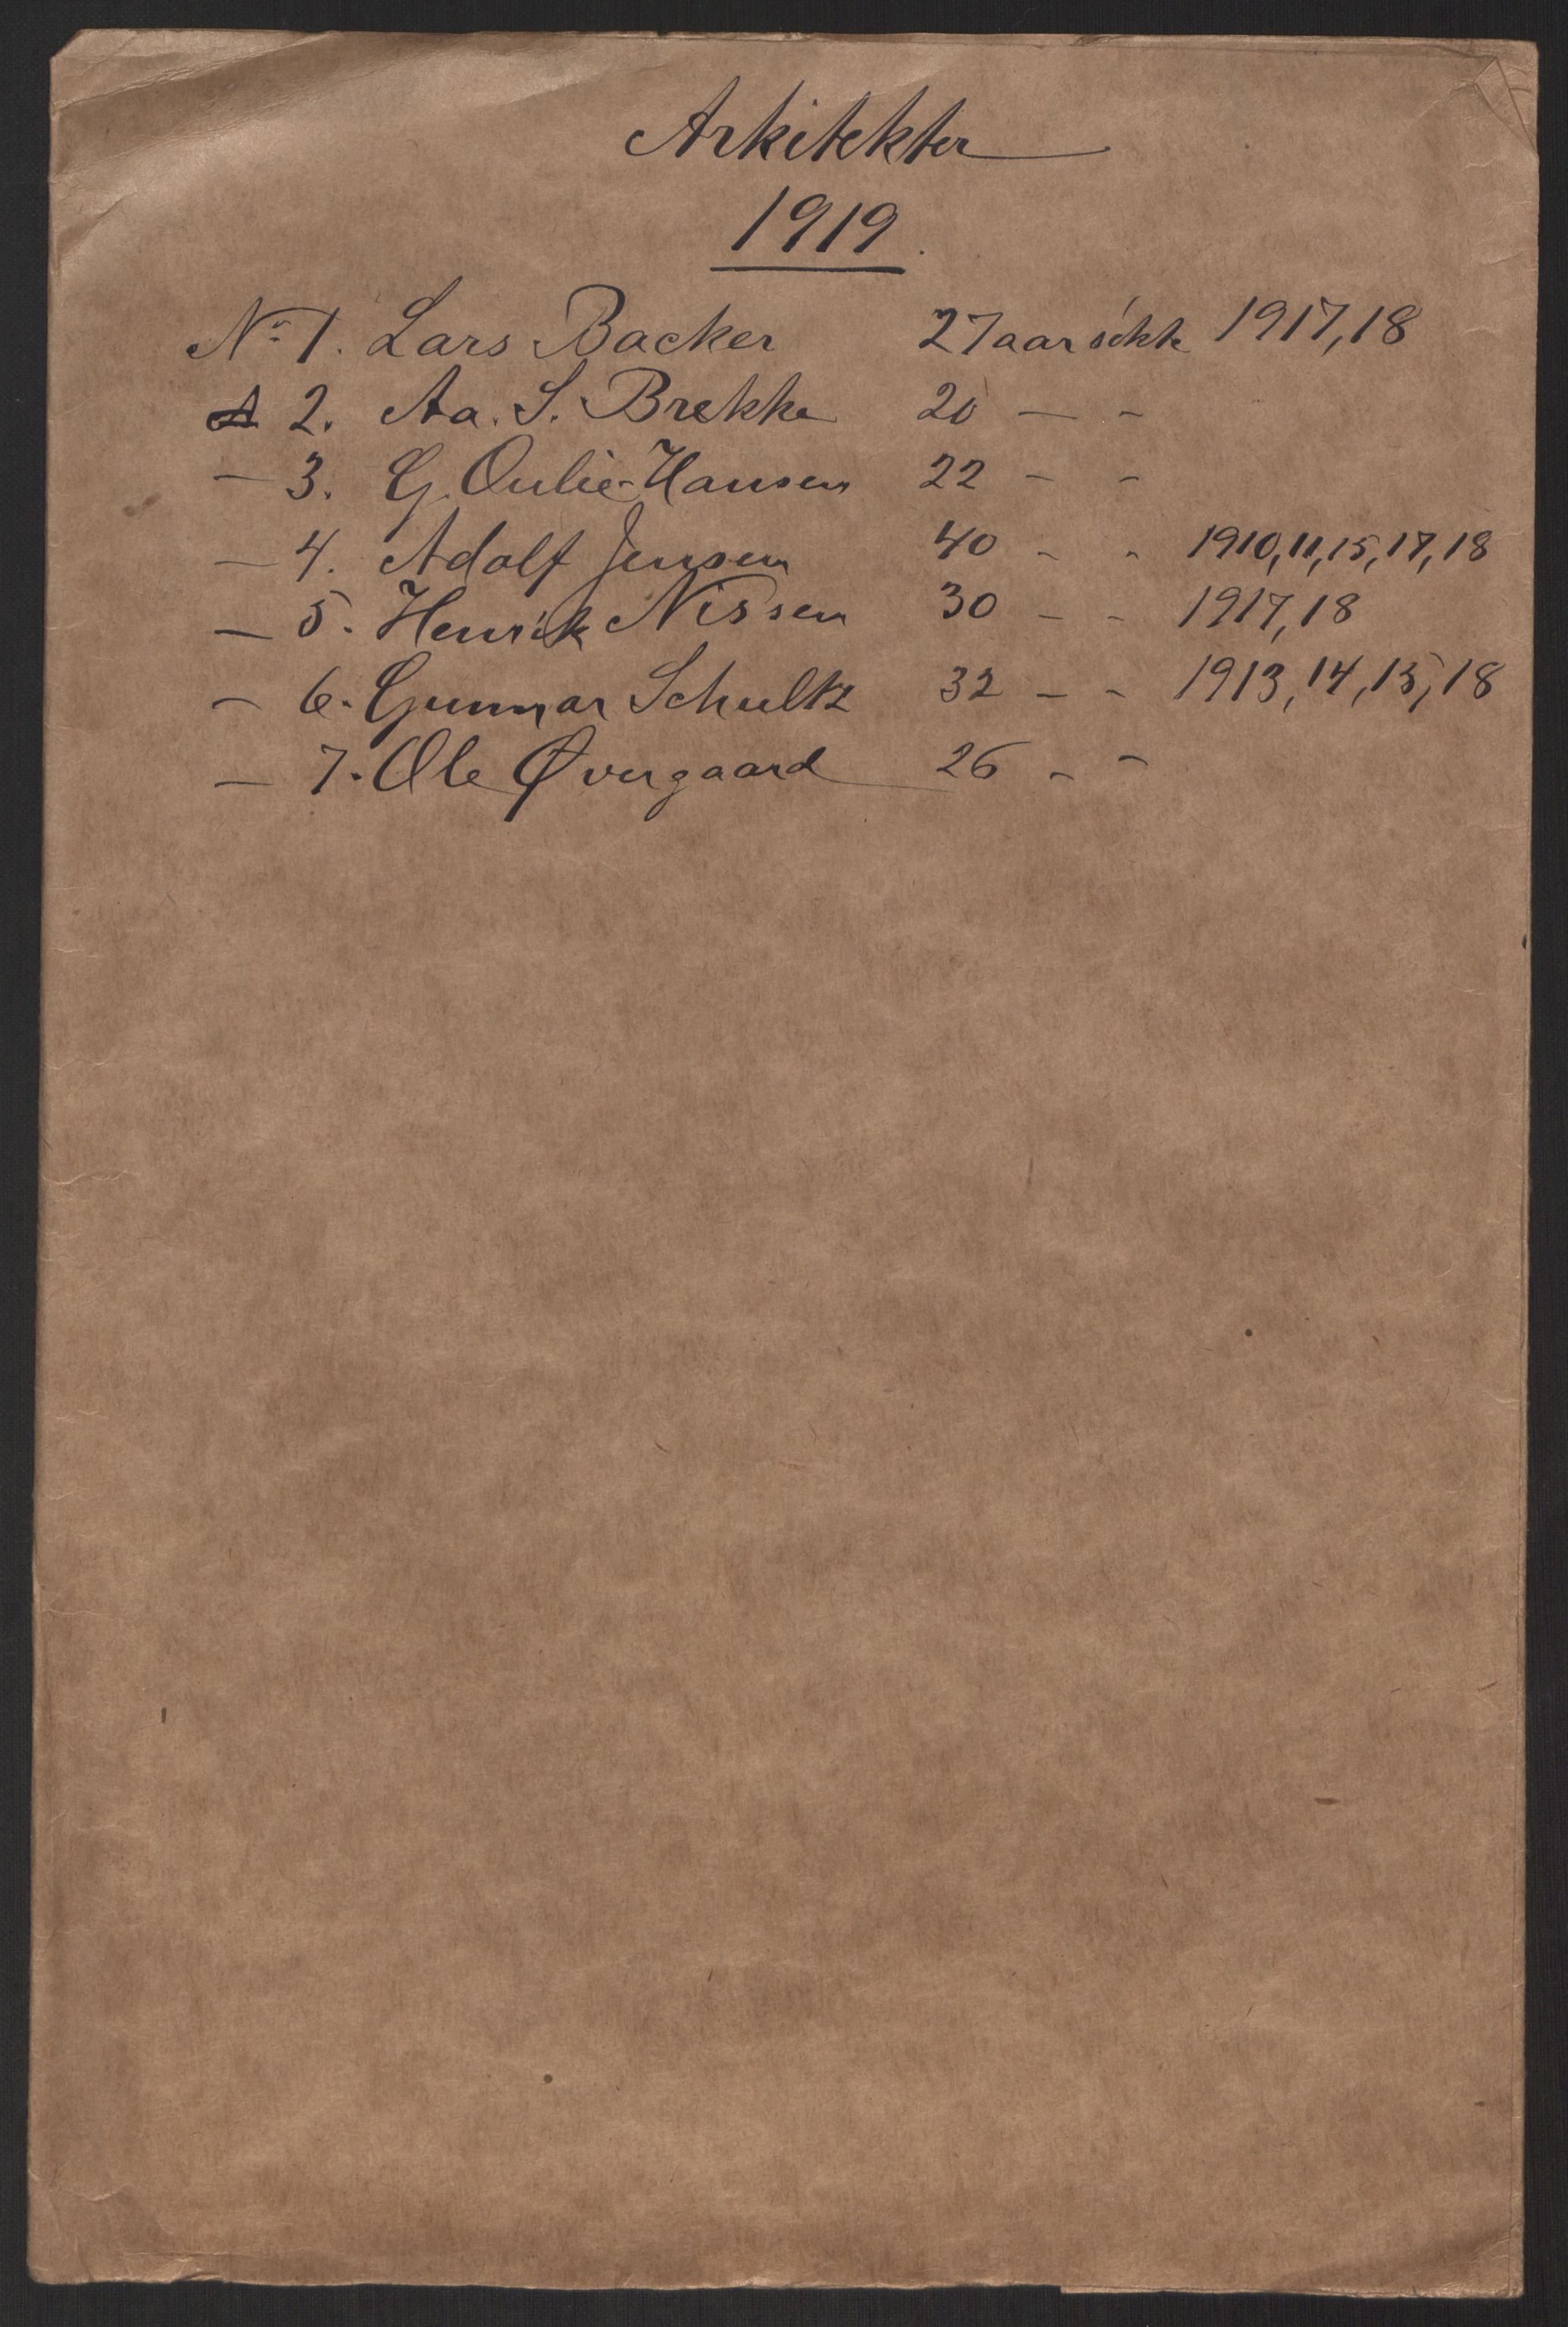 Arkitekter
1919.
No 1. Lars Backer 27 aar søkte 1917, 18
2. Aa. S. Brekke 20 — -
- 3. G. Oulie-Hansen 22 - -
- 4. Adolf Jensen 40 - - 1910, 11, 15, 17, 18
- 5. Henrik Nissen 30 - - 1917, 18
- 6. Gunnar Schultz 32 - - 1913, 14, 15, 18
- 7. Ole Øvergaard 26 - -